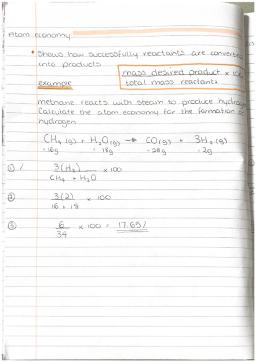 Atom economy
• Shows how successfully reactants are
into products
mass desired product x
total mass reactants
example
methane reacts with steam to produce
Calculate the atom economy for the formation
hydrogen
CH4 (g) + H2O(g) → CO(g) + 3H2(g)
= 16g = 18g = 28g = 2g
① 3(H2) x 100
CH4 + H2O
② 3(2) x 100
16 + 18
③ 6 x 100 = 17.65%
34